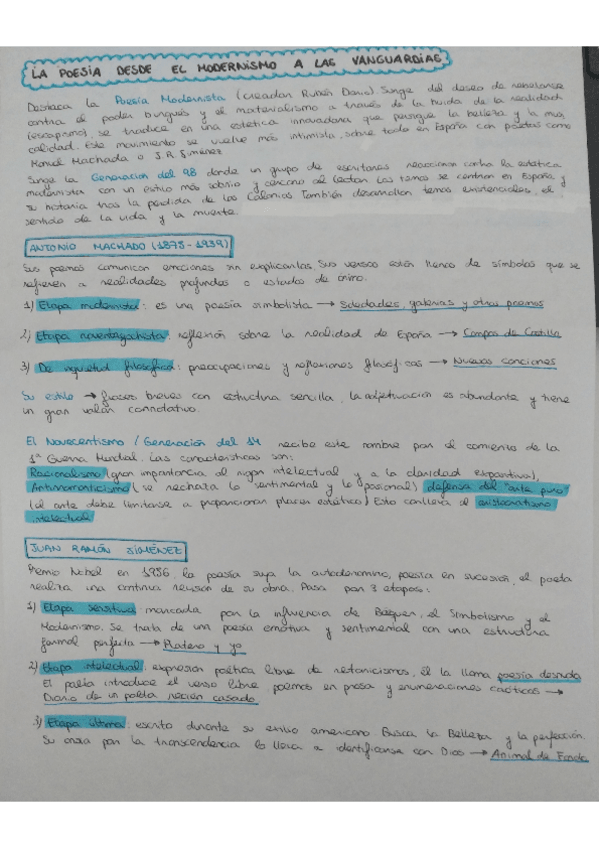 LA POESÍA DESDE EL MODERNISMO A LAS VANGUARDIAS
Destaca la Poesía Modernista (creador Rubén Darío) Surge del deseo de rebelarse
contra el poder burgués y el materialismo a través de la huida de la realidad
(escapismo), se traduce en una estética innovadora que persigue la belleza y la mus
calidad. Este movimiento se vuelve más intimista, sobre todo en España con poetas como
Manuel Machado o J.R. Jiménez
Surge la Generación del 98 donde un grupo de escritores reaccionan contra la estética
modernista con un estilo más sobrio y cercano al lector. Los temas se centran en España y
su historia tras la pérdida de las Colonias. También desarrollan temas existenciales, el
sentido de la vida y la muerte.
ANTONIO MACHADO (1875-1939)
Sus poemas comunican emociones sin explicarlas. Sus versos están llenos de símbolos que se
refieren a realidades profundas o estados de ánimo.
1) Etapa modernista: es una poesía simbolista → Soledades, galerías y otros poemas
2) Etapa noventayochista: reflexión sobre la realidad de España → Campos de Castilla
3) De inquietud filosófica: preocupaciones y reflexiones filosóficas → Nuevas canciones
Su estilo → frases breves con estructura sencilla, la adjetivación es abundante y tiene
un gran valor connotativo.
El Novecentismo / Generación del 14 recibe este nombre por el comienzo de la
1ª Guerra Mundial. Las características son:
Racionalismo (gran importancia al rigor intelectual y a la claridad expositiva),
Antirromanticismo (se rechaza lo sentimental y lo pasional) defensa del "arte puro"
(el arte debe limitarse a proporcionar placer estético) Esto conlleva al aristocratismo
intelectual
JUAN RAMÓN JIMÉNEZ
Premio Nobel en 1956, la poesía suya la autodenomino, poesía en sucesión, el poeta
realiza una continua revisión de su obra. Pasa por 3 etapas:
1) Etapa sensitiva: marcada por la influencia de Bécquer, el Simbolismo y el
Modernismo. Se trata de una poesía emotiva y sentimental con una estructura
formal perfecta → Platero y yo
2) Etapa intelectual: expresión poética libre de retoricismos, él la llama poesía desnuda
El poeta introduce el verso libre, poemas en prosa y enumeraciones caóticas →
Diario de un poeta recién casado
3) Etapa última: escrito durante su exilio americano. Busca la Belleza y la perfección.
Su ansia por la transcendencia lo lleva a identificarse con Dios → Animal de Fondo